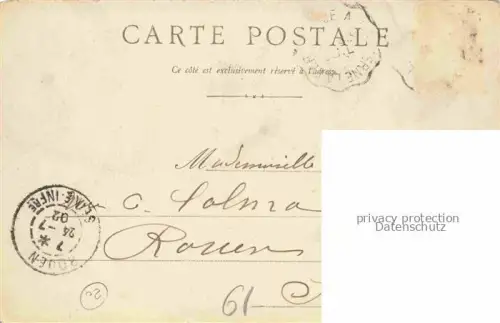 CARTE POSTALE
Ce côté est exclusivement réservé à l'adresse
Mademoiselle
privacy protection
Datenschutz
Rouen
ROUEN
SEINE-INFRE
7 *
24 -7
02
20
61